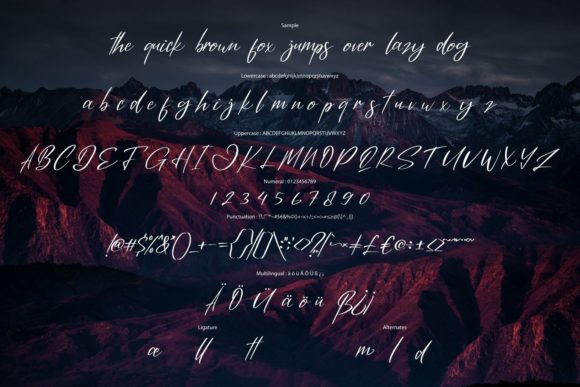 Sample
the quick brown fox jumps over lazy dog
Lowercase : abcdefghijklmnopqrstuvwxyz
a b c d e f g h i j k l m n o p q r s t u v w x y z
Uppercase : ABCDEFGHIJKLMNOPQRSTUVWXYZ
A B C D E F G H I J K L M N O P Q R S T U V W X Y Z
Numeral : 0123456789
1 2 3 4 5 6 7 8 9 0
Punctuation :
Multilingual : ä ö ü Ä Ö Ü ß ¿ ¡
Ä Ö Ü ä ö ü ß ¿ ¡
Ligature Alternates
æ ll tt m l d